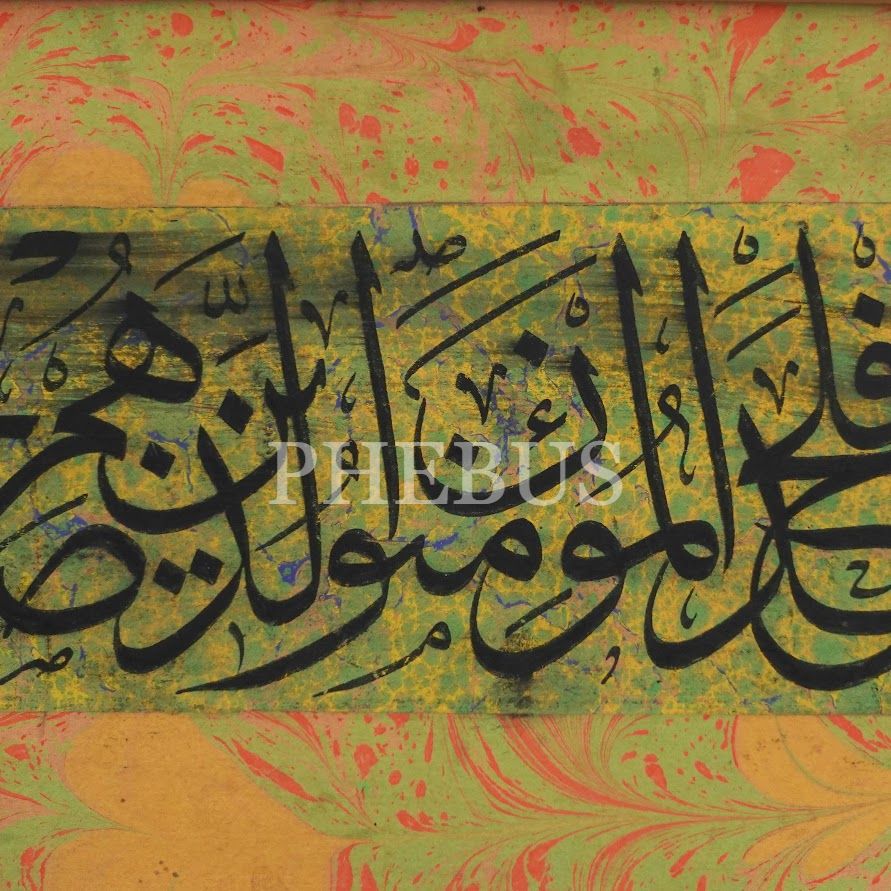 فلح المؤمنون الذين هم
PHEBUS